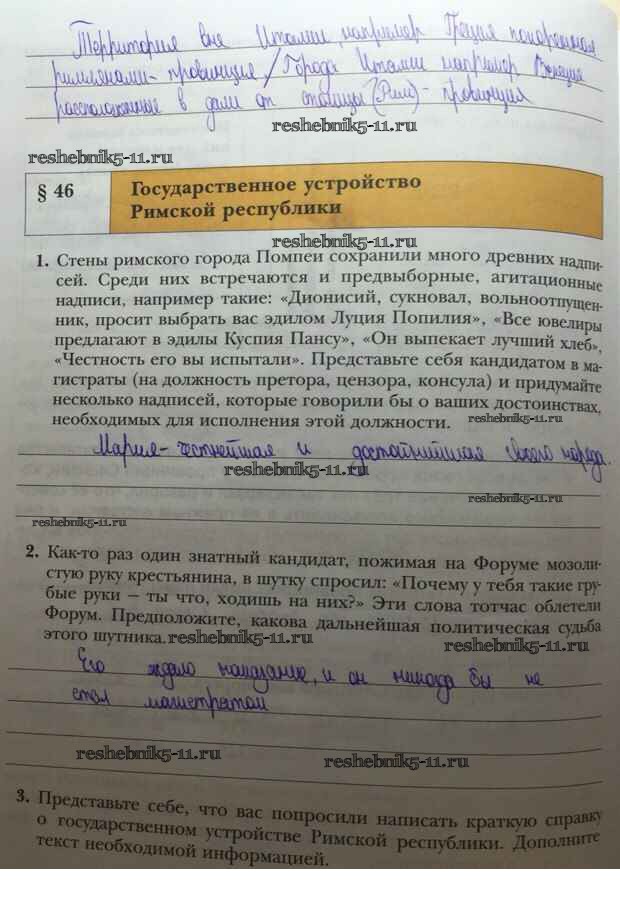 Территория вне Италии, например Греция покоренная
римлянами - провинция / Города Италии например Венеция
расположенные в дали от столицы (Рим) - провинция
reshebnik5-11.ru
reshebnik5-11.ru
§ 46 Государственное устройство
Римской республики
reshebnik5-11.ru
1. Стены римского города Помпеи сохранили много древних надпи-
сей. Среди них встречаются и предвыборные, агитационные
надписи, например такие: «Дионисий, сукновал, вольноотпущен-
ник, просит выбрать вас эдилом Луция Попилия», «Все ювелиры
предлагают в эдилы Куспия Пансу», «Он выпекает лучший хлеб»,
«Честность его вы испытали». Представьте себя кандидатом в ма-
гистраты (на должность претора, цензора, консула) и придумайте
несколько надписей, которые говорили бы о ваших достоинствах,
необходимых для исполнения этой должности. reshebnik5-11.ru
Мария - честнейшая и достойнейшая своего народа.
reshebnik5-11.ru
reshebnik5-11.ru
2. Как-то раз один знатный кандидат, пожимая на Форуме мозоли-
стую руку крестьянина, в шутку спросил: «Почему у тебя такие гру-
бые руки – ты что, ходишь на них?» Эти слова тотчас облетели
Форум. Предположите, какова дальнейшая политическая судьба
этого шутника. reshebnik5-11.ru reshebnik5-11.ru
Его ждало наказание, и он никогда бы не
стал магистратом
reshebnik5-11.ru reshebnik5-11.ru
3. Представьте себе, что вас попросили написать краткую справку
о государственном устройстве Римской республики. Дополните
текст необходимой информацией.